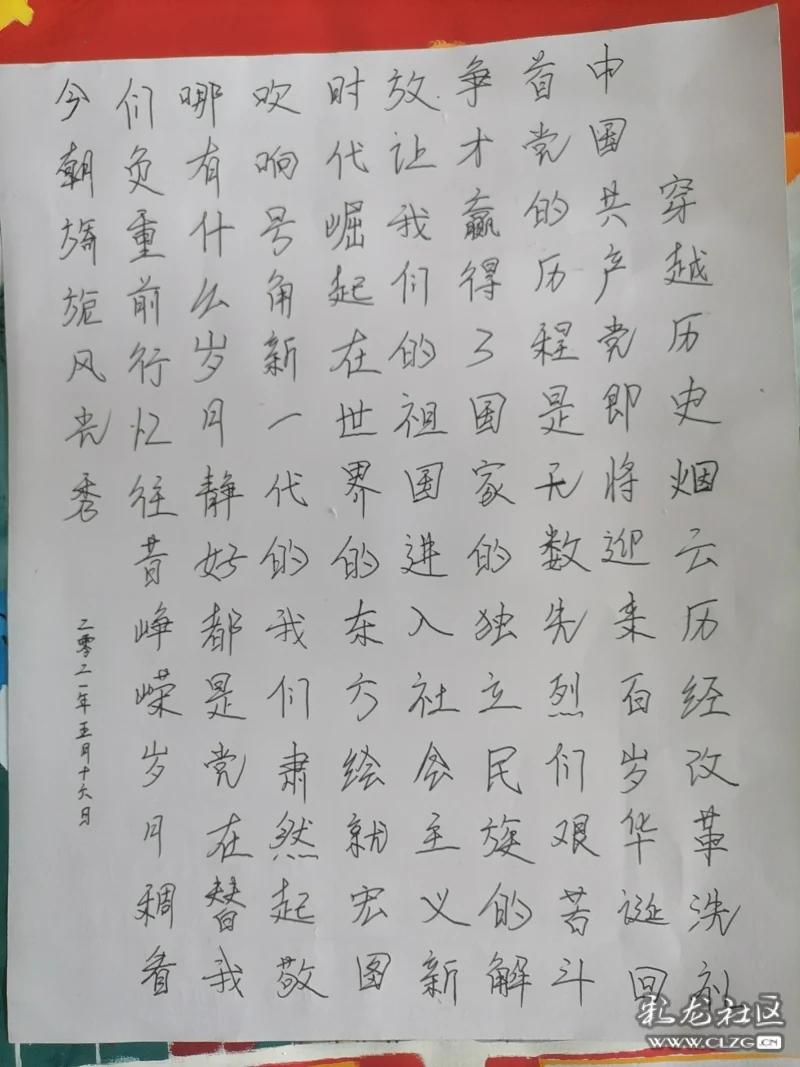 穿越历史烟云历经改革洗礼
中国共产党即将迎来百岁华诞回
首党的历程是无数先烈们艰苦斗
争才赢得了国家的独立民族的解
放让我们的祖国进入社会主义新
时代崛起在世界的东方绘就宏图
吹响号角新一代的我们肃然起敬
哪有什么岁月静好都是党在替我
们负重前行忆往昔峥嵘岁月稠看
今朝旖旎风光秀
二零二一年五月十六日
彩龙社区
WWW.CLZG.CN